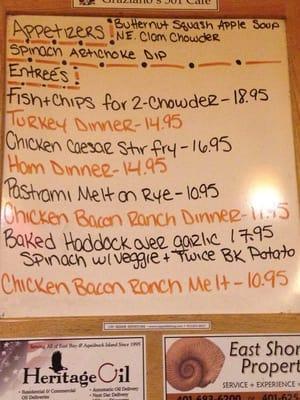 Graziano's 501 Cafe
Appetizers! Butternut Squash Apple Soup
N.E. Clam Chowder
Spinach Artichoke Dip
Entrée's!
Fish+Chips for 2-Chowder - 18.95
Turkey Dinner - 14.95
Chicken Caesar Stir fry - 16.95
Ham Dinner - 14.95
Pastrami Melt on Rye - 10.95
Chicken Bacon Ranch Dinner -
Baked Haddock over garlic 17.95
Spinach w/ veggie + Twice BK Potato
Chicken Bacon Ranch Melt - 10.95
Serving All of East Bay & Aquidneck Island Since 1995
Heritage Oil
• Residential & Commercial
• Automatic Oil Delivery
• Next Day Delivery
East Shor
Propert
SERVICE + EXPERIENCE
401-683-6200 or 401-625